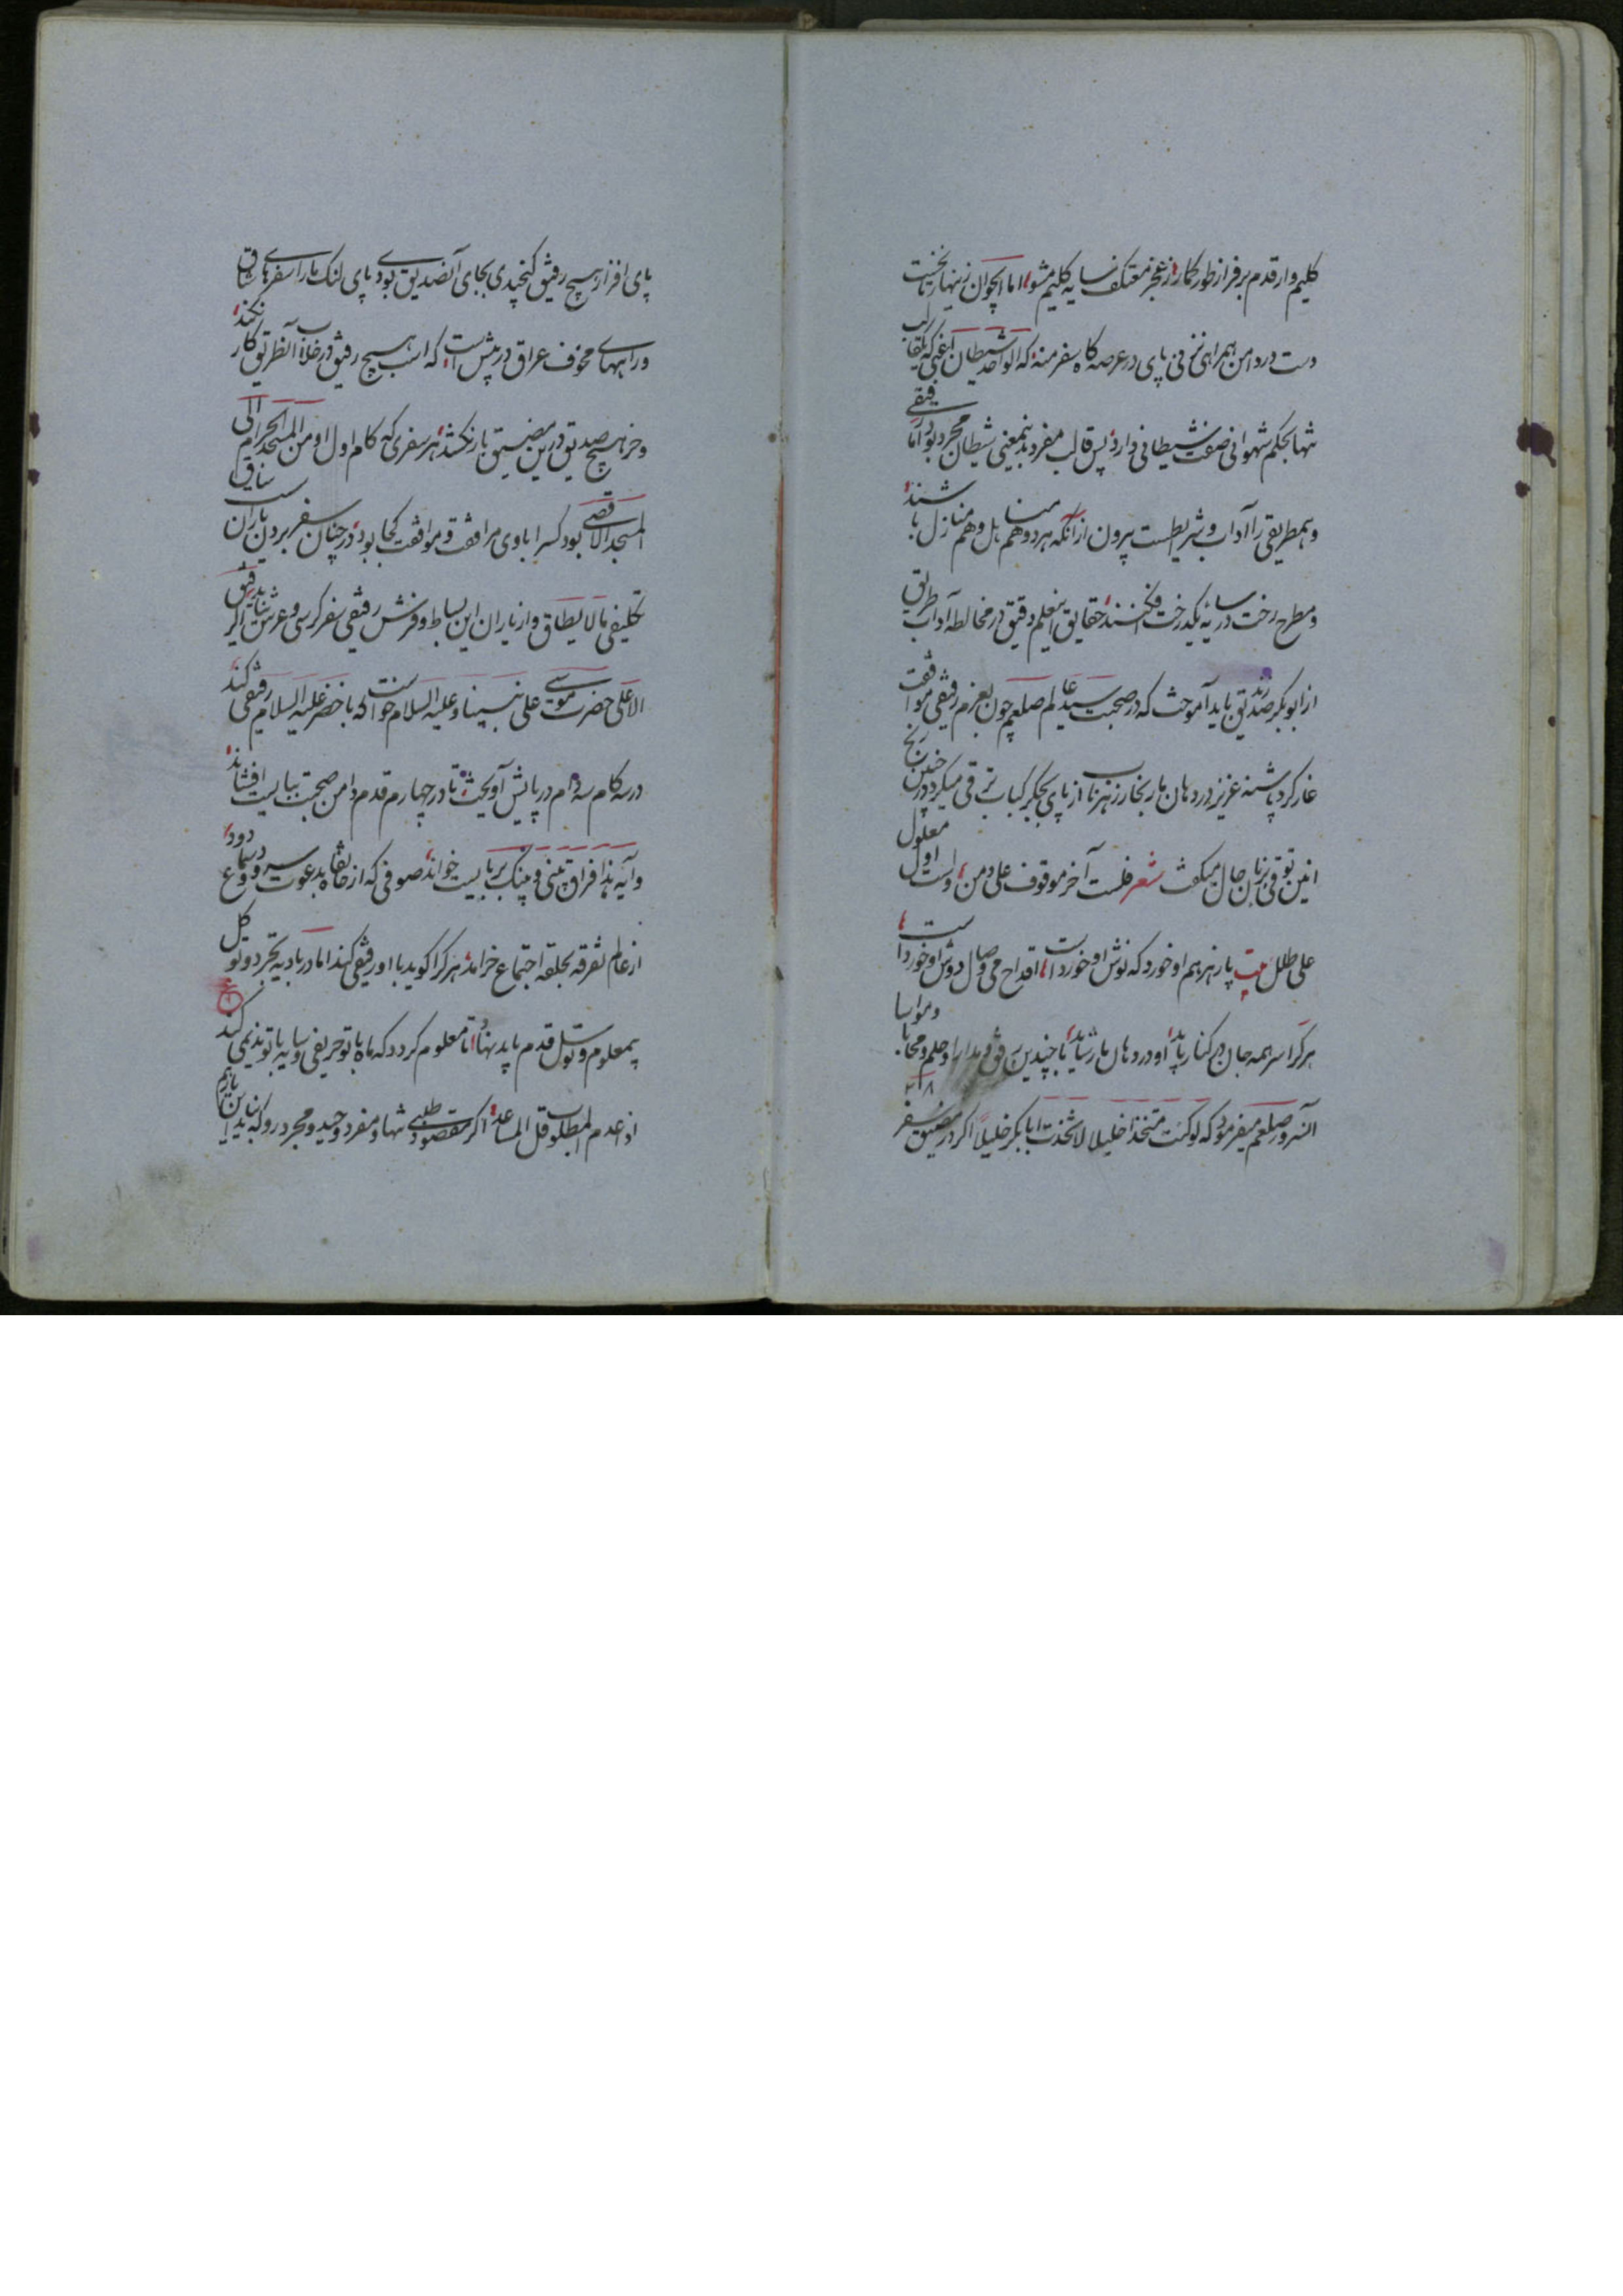 کلیم وار قدم بر فراز طور گمار از عجز معتکف سایه گلیم مشو اما ایجوان زینهار تا نخست
دست در دامن همراهی نزنی پای در عرصه گاه سفر منه که الواحد شیطان اعنی که قالب
تنها بحکم شهوانی صفت شیطانی دارد پس قالب مفرد بدینمعنی شیطان مجرد بود اما رفیقی
و همطریقی را آداب و شرایطست بیرون از آنکه هر دو هم مناهل و هم منازل باشند
و مطرح رخت در سایه یکدرخت فکنند حقایق اینعلم دقیق در مخالطه آداب طریق
از ابوبکر صدیق رض باید آموخت که در صحبت سید عالم صلعم چون بعزم رفیقی موافقت
غار کرد پاشنه عزیز در دهان مار بخار زهرناب از پای بجگر کباب ترقی میکرد در حین رنج
انین توقی بزبان حال میگفت شعر فلست آخر موقوف علی دمن و لست اول معلول
علی طلل بیت پار زهر هم او خورد که نوش او خوردست اقداح می وصال دوش او خوردست
هر کرا سر همه جان در کنار باید او در دهان مار شاید با چندین رفق و مدارا و حلم و محابا و مواسا
آنسرور صلعم میفرمود که لو کنت متخذا خلیلا لاتخذت ابابکر خلیلا اگر در مضیق سفر
پای افزار هیچ رفیق گنجیدی بجای آنصدیق بودی پای لنگ ما را سفرهای شاق
و راههای مخوف عراق در پیش است که اسب هیچ رفیق در خلاب آنطریق کار نکند
و خر هیچ صدیق درین مضیق بار نکشد هر سفری که گام اول او من المسجد الحرام الی
المسجد الاقصی بود کسرا با وی مرافقت و موافقت کجا بود در چنان سفر بردن یاران سیاق
تکلیف ما لا یطاق و از یاران این بساط و فرش رفیقی سفر کرسی و عرش نباید الرفیق
الاعلی حضرت موسی علی نبینا و علیه السلام خواست که با خضر علیه السلام رفیقی کند
در سه گام سه دام در پایش آویخت تا در چهارم قدم دامن صحبت ببایست افشاند
و آیه هذا فراق بینی و بینک بر ببایست خواند صوفی که از خانقاه بدعوت سرود و سماع دود
از عالم تفرقه بحلقه اجتماع خرامد هر کرا گوید با او رفیقی کند اما در بادیه تجرد و توکل
بیمعلوم و توسل قدم باید نهاد تا معلوم گردد که ماه با تو حریفی و سایه با تو ندیمی کند
اذا عدم المطلوب قل المساعد اگر مقصود طلبی تنها و مفرد و وحید و مجرد رو که بدین